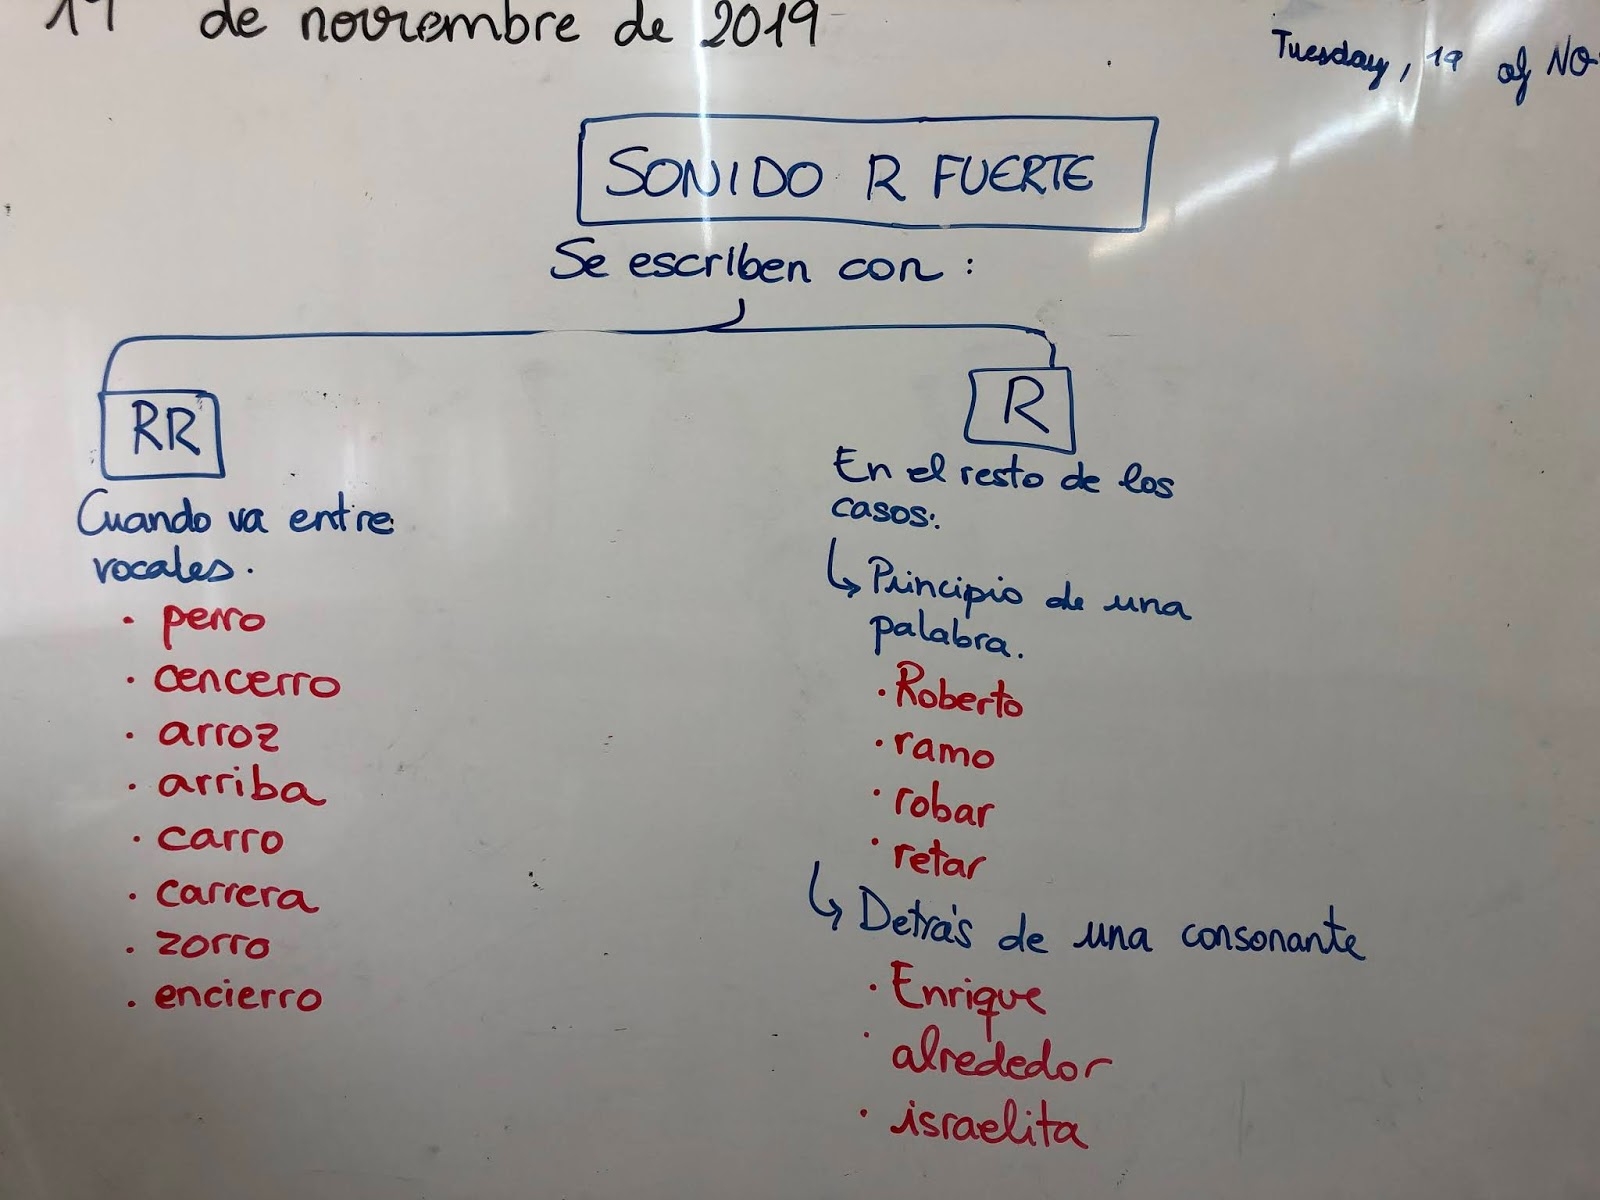 19 de noviembre de 2019
Tuesday, 19 of NO
SONIDO R FUERTE
Se escriben con :
RR
Cuando va entre
vocales.
· perro
· cencerro
· arroz
· arriba
· carro
· carrera
· zorro
· encierro
R
En el resto de los
casos:
↳ Principio de una
palabra.
· Roberto
· ramo
· robar
· retar
↳ Detrás de una consonante
· Enrique
· alrededor
· israelita